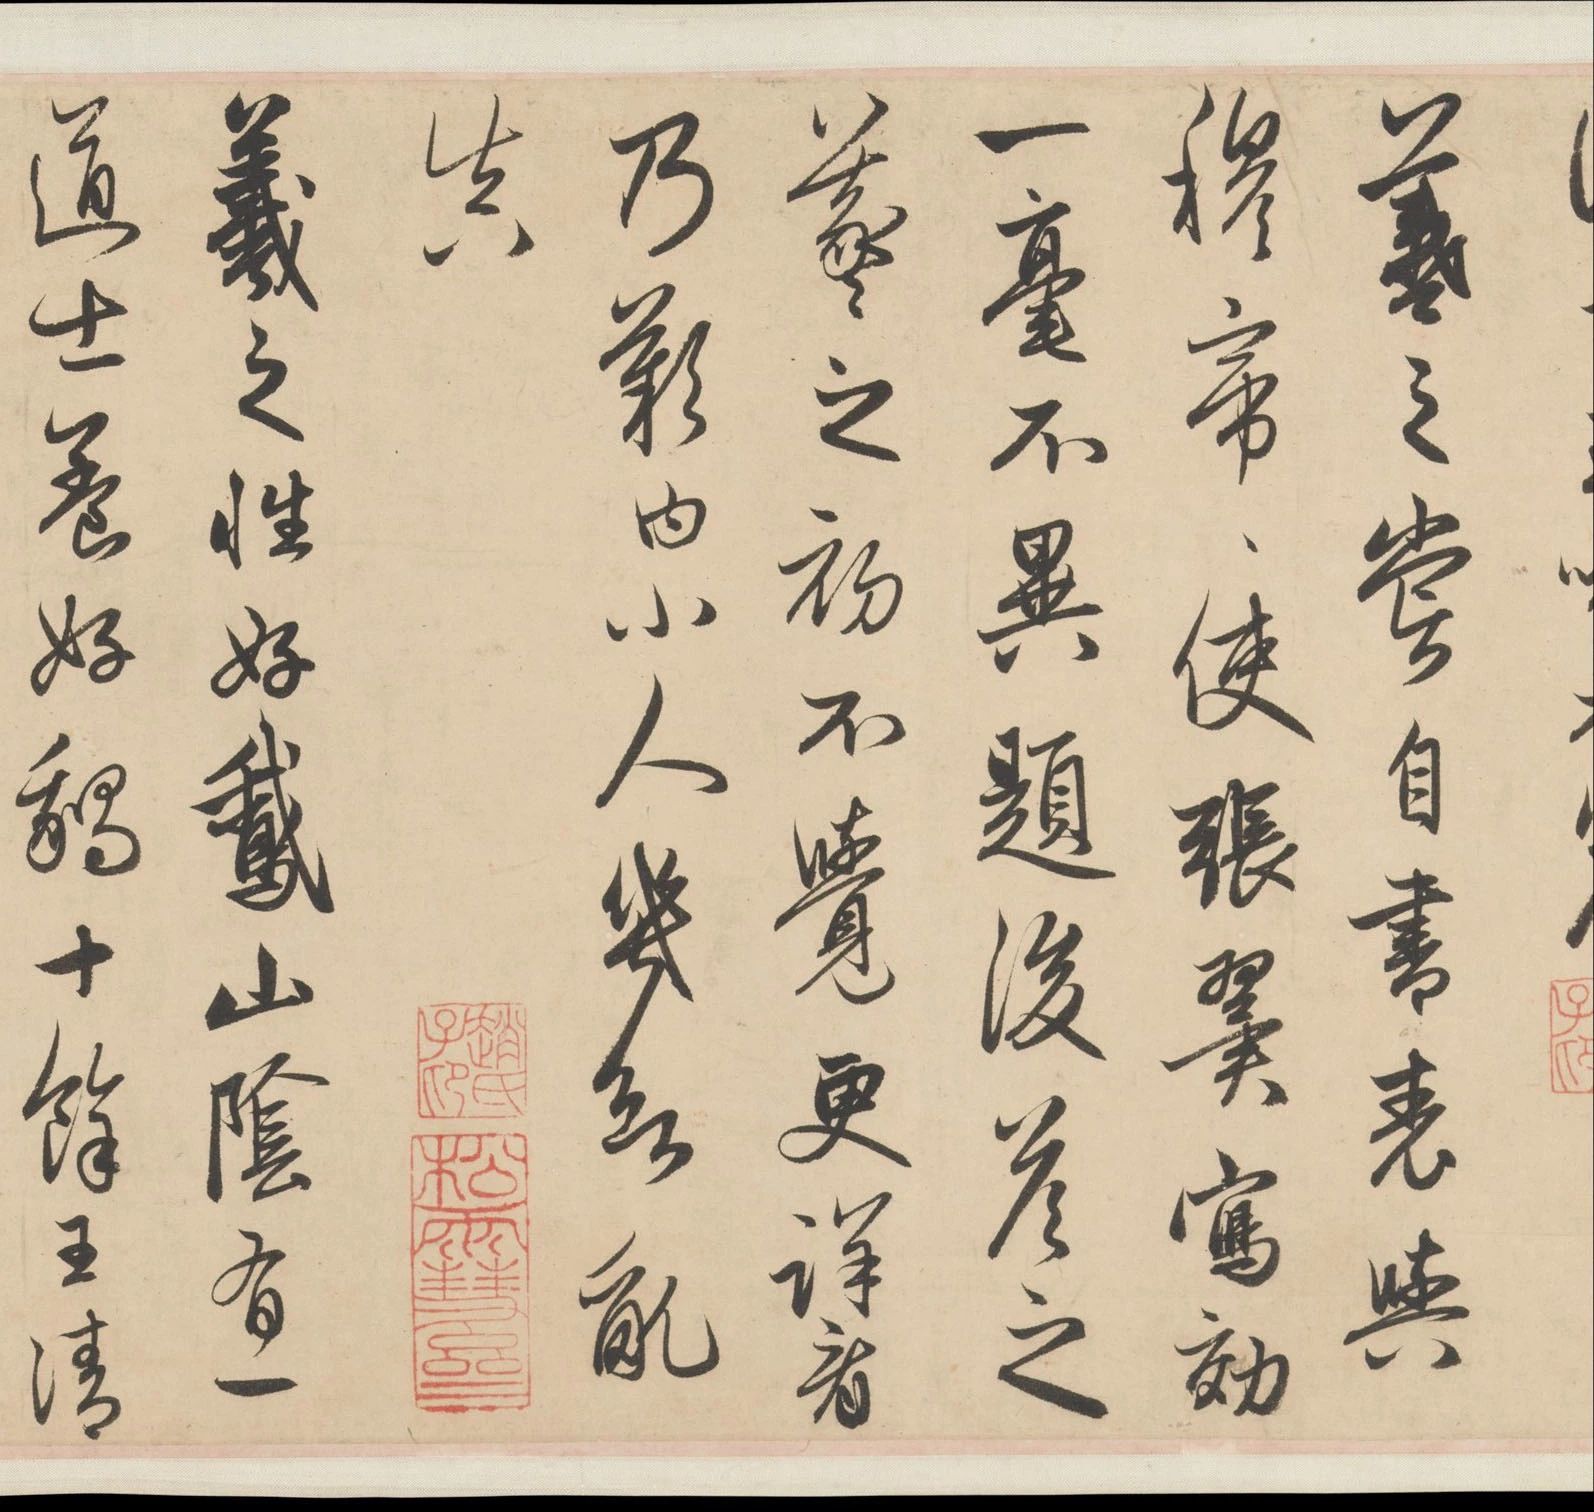 羲之嘗自書表與
穆帝〻使張翼寫効
一毫不異題後答之
羲之初不覺更詳看
乃歎曰小人幾欲亂
真
趙氏子昂
松雪齋
羲之性好鵞山陰有一
道士養好鵝十餘王清